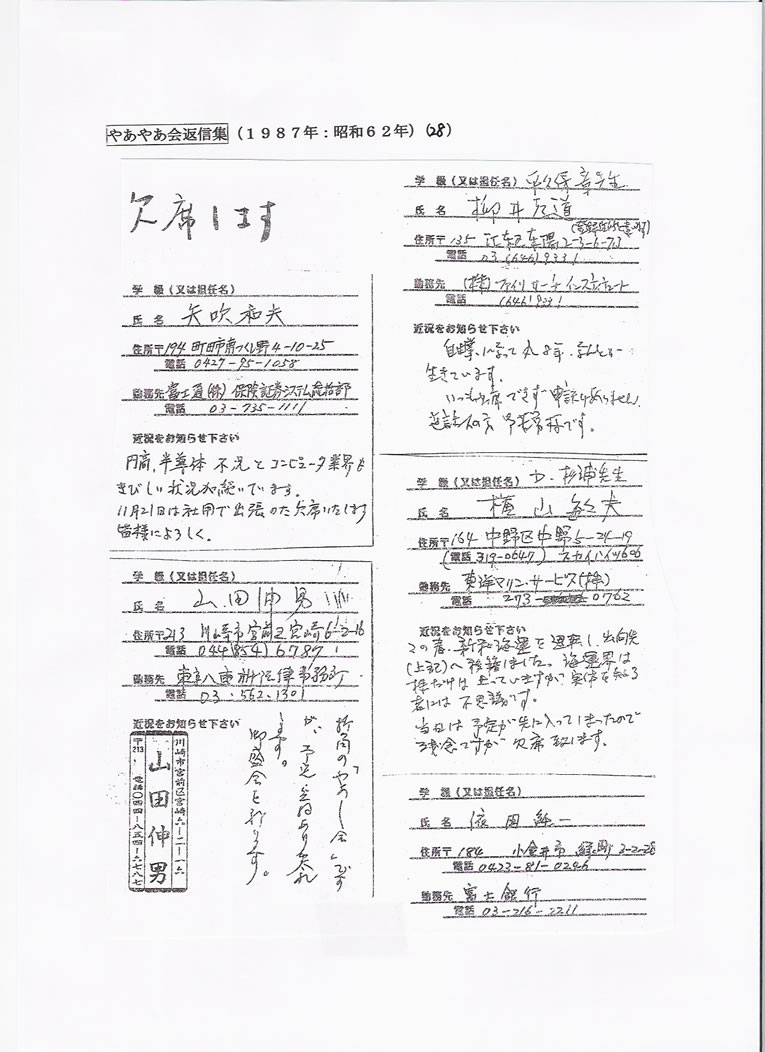 やあやあ会返信集（１９８７年：昭和６２年）(28)
欠席します
学　級（又は担任名）
氏　名　矢吹和夫
住所〒194 町田市南つくし野4-10-25
電話 0427-95-1058
勤務先 富士通(株) 保険証券システム統括部
電話 03-735-1111
近況をお知らせ下さい
円高、半導体不況とコンピュータ業界も
きびしい状況が続いています。
11月21日は社用で出張のため欠席いたします
皆様によろしく。
学　級（又は担任名）
氏　名　山田伸男
住所〒213 川崎市宮前区宮崎6-2-16
電話 044(854)6787
勤務先 東京八重洲法律事務所
電話 03-562-1301
近況をお知らせ下さい
折角の「やあやあ会」です
が、予定
ます。
御盛会を祈ります。
川崎市宮前区宮崎六－二－一六
山田伸男
〒213 電話〇四四－八五四－六七八七
学　級（又は担任名）　先生
氏　名　柳井
住所〒135 江東区東陽2-3-6-713
電話 03(646)9331
勤務先 (株)
電話 (646)9331
近況をお知らせ下さい
自営になって丸8年、なんとか
生きています。
いつも欠席です 申訳ありません。
学　級（又は担任名）D. 杉浦先生
氏　名　横山敏夫
住所〒164 中野区中野5-24-19
(電話 319-0647) スカイハイツ606
勤務先 東洋マリン・サービス(株)
電話 273- 0762
近況をお知らせ下さい
この春、新和海運を退職し、出向先
(上記)へ移籍しました。海運界は
株だけは上っていますが実体を知る
者には不思議です。
当日は予定が先に入ってしまったので
残念ですが欠席致します。
学　級（又は担任名）
氏　名　依田純一
住所〒184 小金井市緑町3-2-28
電話 0423-81-0246
勤務先 富士銀行
電話 03-216-2211